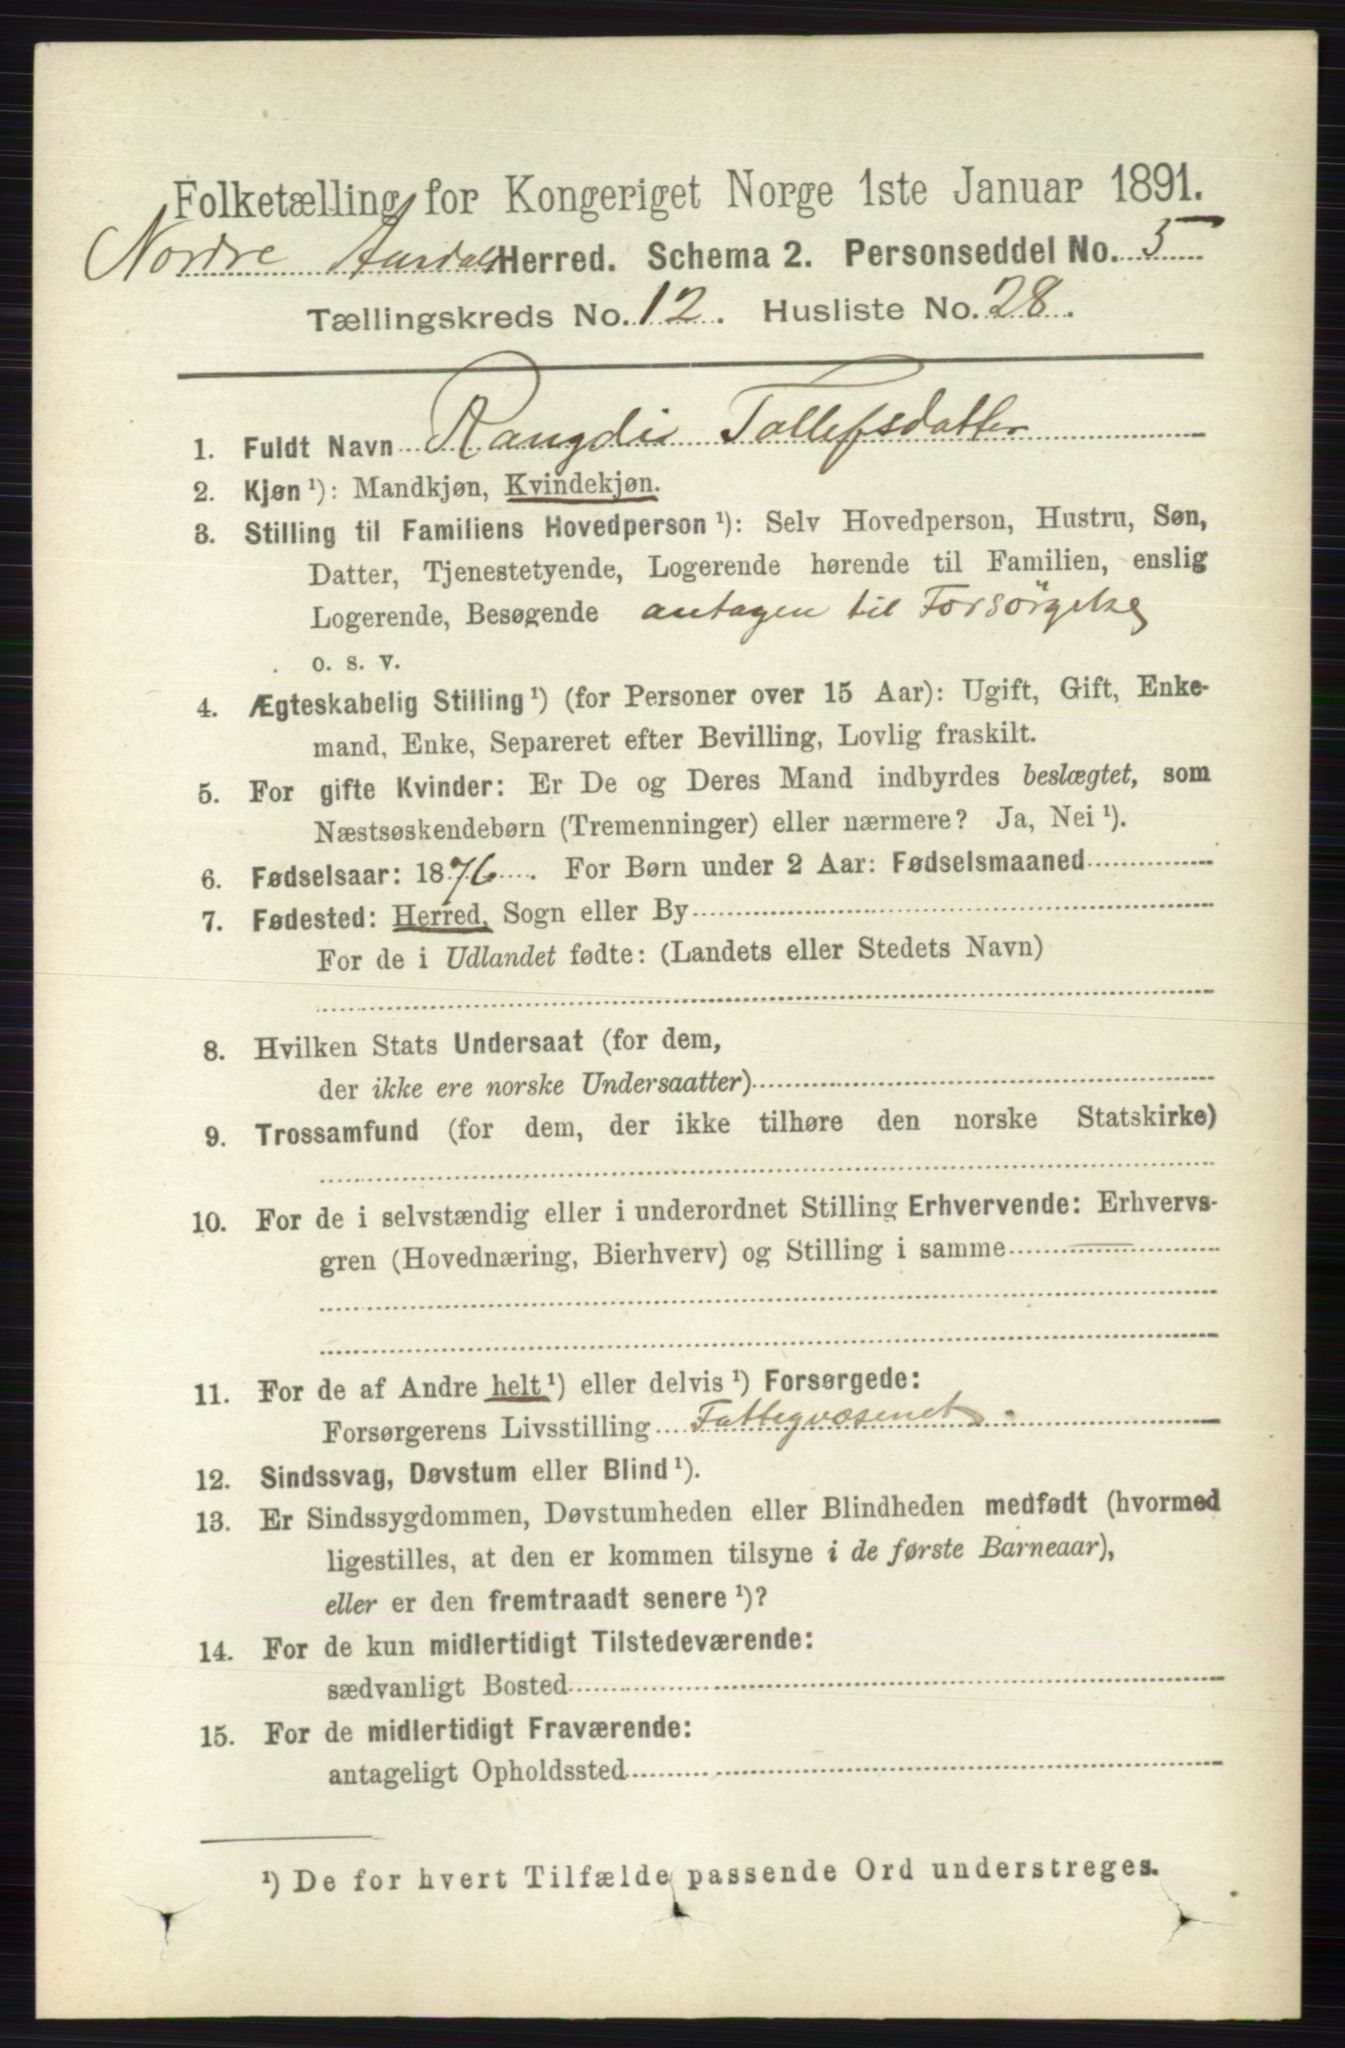 Folketælling for Kongeriget Norge 1ste Januar 1891.
Nordre Aurdals Herred. Schema 2. Personseddel No. 5
Tællingskreds No. 12. Husliste No. 28.
1. Fuldt Navn Rangdi Tollefsdatter
2. Kjøn ¹): Mandkjøn, Kvindekjøn.
3. Stilling til Familiens Hovedperson ¹): Selv Hovedperson, Hustru, Søn,
Datter, Tjenestetyende, Logerende hørende til Familien, enslig
Logerende, Besøgende antagen til Forsörgelse
o. s. v.
4. Ægteskabelig Stilling ¹) (for Personer over 15 Aar): Ugift, Gift, Enke-
mand, Enke, Separeret efter Bevilling, Lovlig fraskilt.
5. For gifte Kvinder: Er De og Deres Mand indbyrdes beslægtet, som
Næstsøskendebørn (Tremenninger) eller nærmere? Ja, Nei ¹).
6. Fødselsaar: 1876. For Børn under 2 Aar: Fødselsmaaned
7. Fødested: Herred, Sogn eller By
For de i Udlandet fødte: (Landets eller Stedets Navn)
8. Hvilken Stats Undersaat (for dem,
der ikke ere norske Undersaatter)
9. Trossamfund (for dem, der ikke tilhøre den norske Statskirke)
10. For de i selvstændig eller i underordnet Stilling Erhvervende: Erhvervs-
gren (Hovednæring, Bierhverv) og Stilling i samme
11. For de af Andre helt ¹) eller delvis ¹) Forsørgede:
Forsørgerens Livsstilling Fattigvæsenet.
12. Sindssvag, Døvstum eller Blind ¹).
13. Er Sindssygdommen, Døvstumheden eller Blindheden medfødt (hvormed
ligestilles, at den er kommen tilsyne i de første Barneaar),
eller er den fremtraadt senere ¹)?
14. For de kun midlertidigt Tilstedeværende:
sædvanligt Bosted
15. For de midlertidigt Fraværende:
antageligt Opholdssted
¹) De for hvert Tilfælde passende Ord understreges.